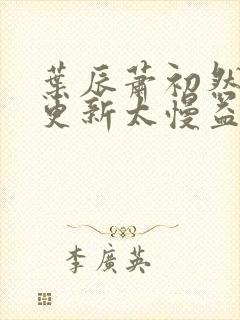 葉辰蕭初然
更新太慢盜
李廣英